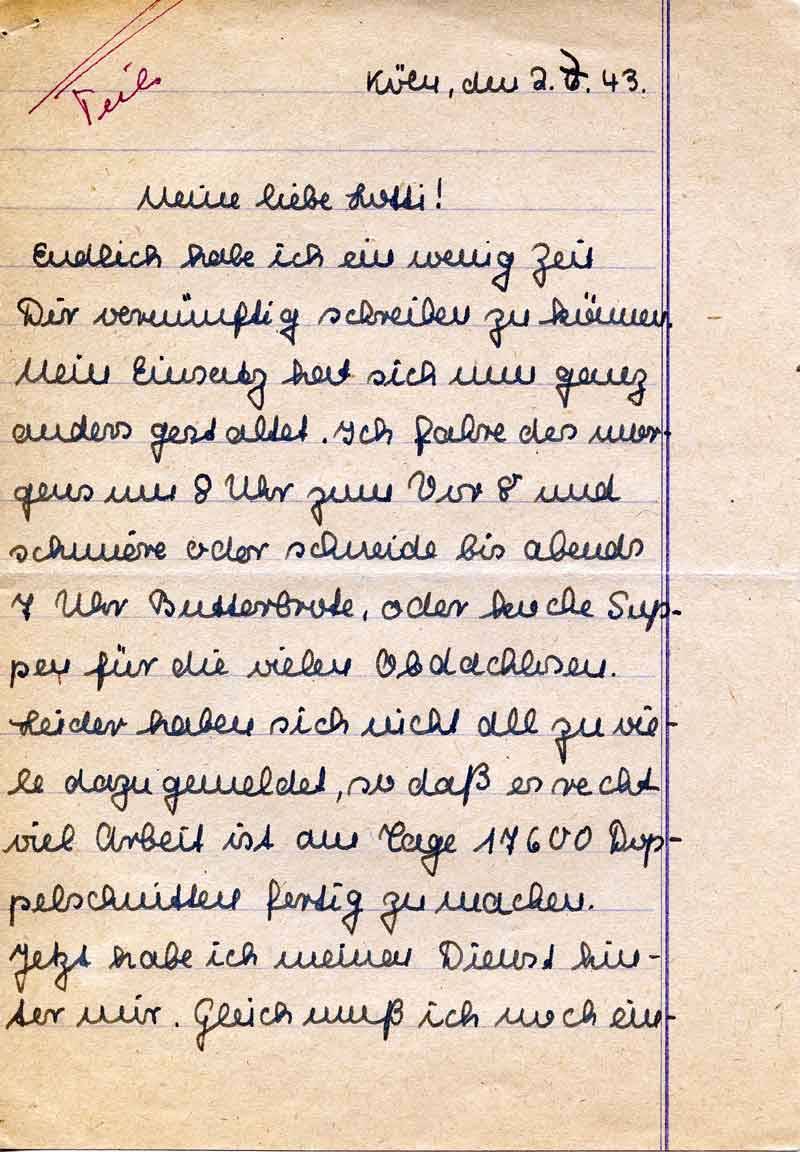 Teils
Köln, den 2.7.43.
Meine liebe Lotti!
Endlich habe ich ein wenig Zeit
Dir vernünftig schreiben zu können.
Mein Einsatz hat sich nun ganz
anders gestaltet. Ich fahre des mor-
gens um 8 Uhr zum Vor 8 und
schmiere oder schneide bis abends
7 Uhr Butterbrote, oder koche Sup-
pen für die vielen Obdachlosen.
Leider haben sich nicht all zu vie-
le dazu gemeldet, so daß es recht
viel Arbeit ist am Tage 17600 Dop-
pelschnitten fertig zu machen.
Jetzt habe ich meinen Dienst hin-
ter mir. Gleich muß ich noch ein-